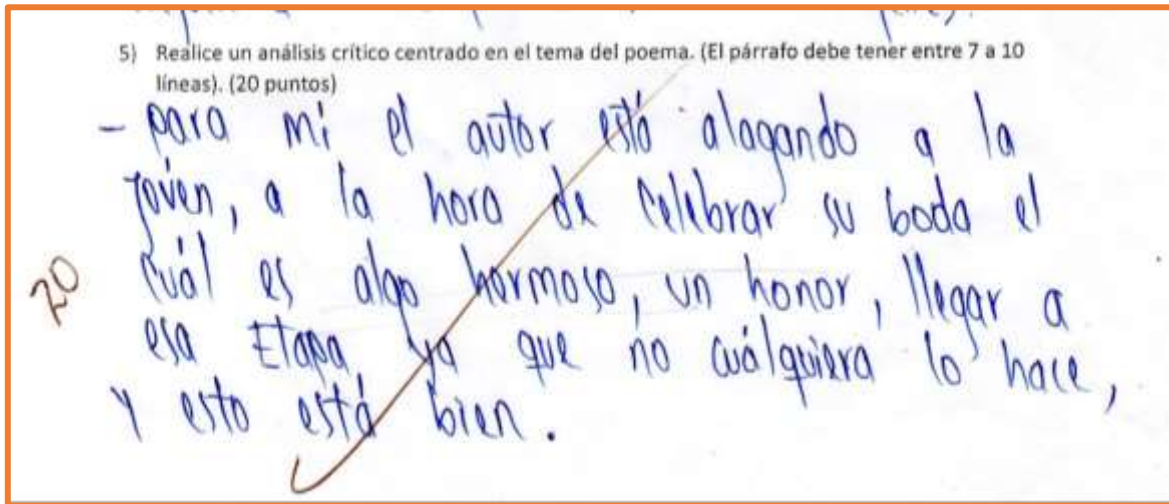 5) Realice un análisis crítico centrado en el tema del poema. (El párrafo debe tener entre 7 a 10
líneas). (20 puntos)
- para mi el autor está alagando a la
joven, a la hora de celebrar su boda el
cuál es algo hermoso, un honor, llegar a
esa Etapa ya que no cuálquiera lo hace,
y esto está bien.
20